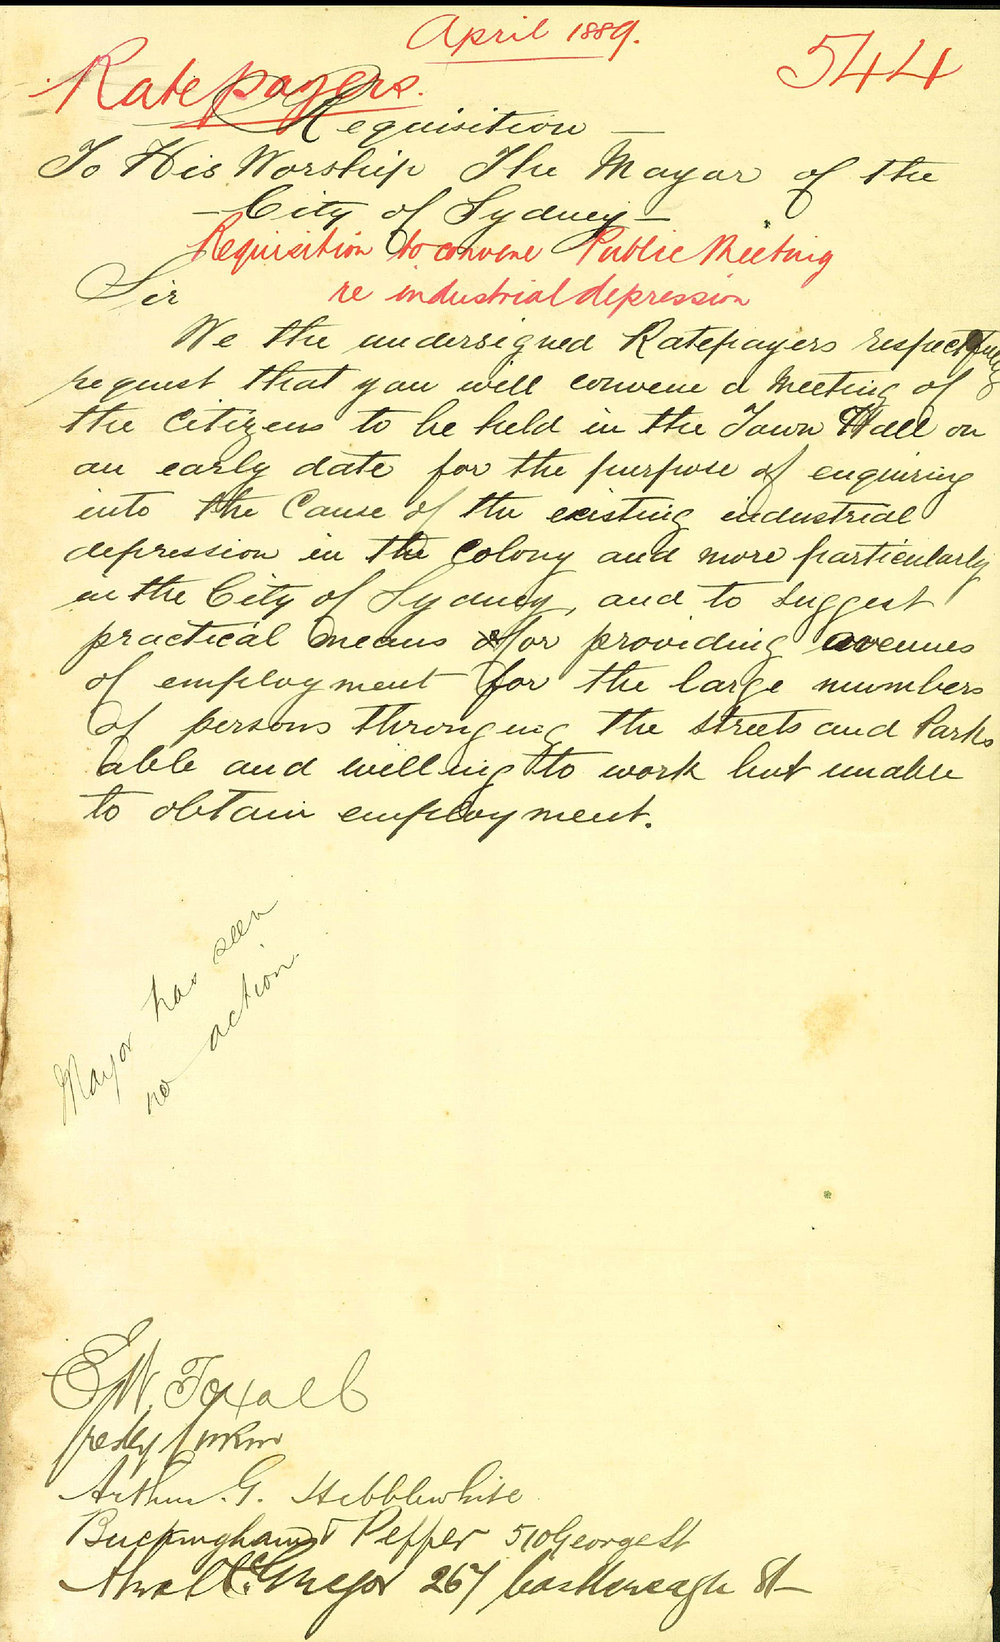 April 1889.
544
Ratepayers.
Requisition —
To His Worship The Mayor of the
— City of Sydney —
Requisition to convene Public Meeting
Sir re industrial depression
We the undersigned Ratepayers respectfully
request that you will convene a Meeting of
the Citizens to be held in the Town Hall on
an early date for the purpose of enquiring
into the Cause of the existing industrial
depression in the Colony and more particularly
in the City of Sydney, and to suggest
practical means for providing avenues
of employment for the large numbers
of persons thronging the streets and Parks
able and willing to work but unable
to obtain employment.
Mayor has seen
no action.
E W. Foxall
Arthur. G. Hebblewhite
Buckingham & Pepper 510 George St
McGregor 267 Castlereagh St